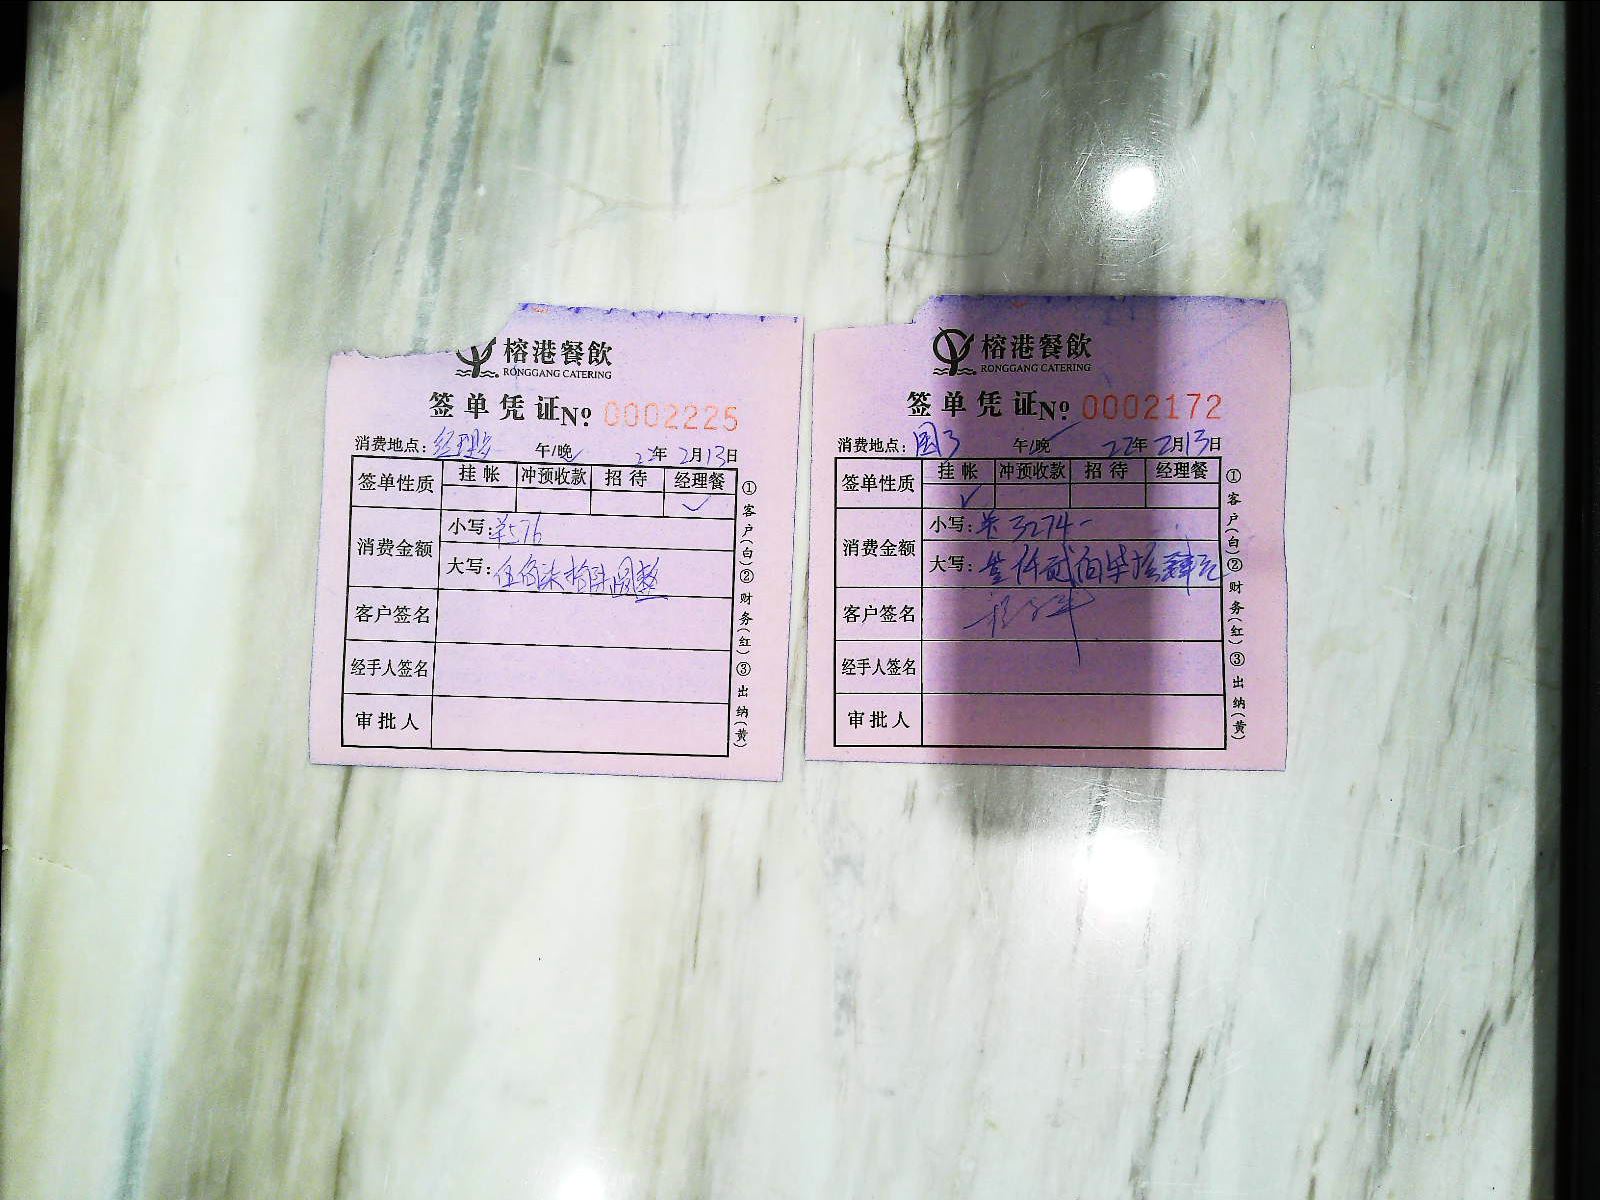 榕港餐飲
RONGGANG CATERING
签单凭证 No: 0002225
消费地点: 午/晚 22年 2月13日
签单性质 挂帐 冲预收款 招待 经理餐
✓
消费金额 小写: ¥576
大写: 伍佰柒拾陆圆整
客户签名
经手人签名
审批人
①客户(白)②财务(红)③出纳(黄)
榕港餐飲
RONGGANG CATERING
签单凭证 No: 0002172
消费地点: 国3 午/晚 ✓ 22年 2月13日
签单性质 挂帐 冲预收款 招待 经理餐
✓
消费金额 小写: ¥3274-
大写: 叁仟贰佰柒拾肆元
客户签名
经手人签名
审批人
①客户(白)②财务(红)③出纳(黄)